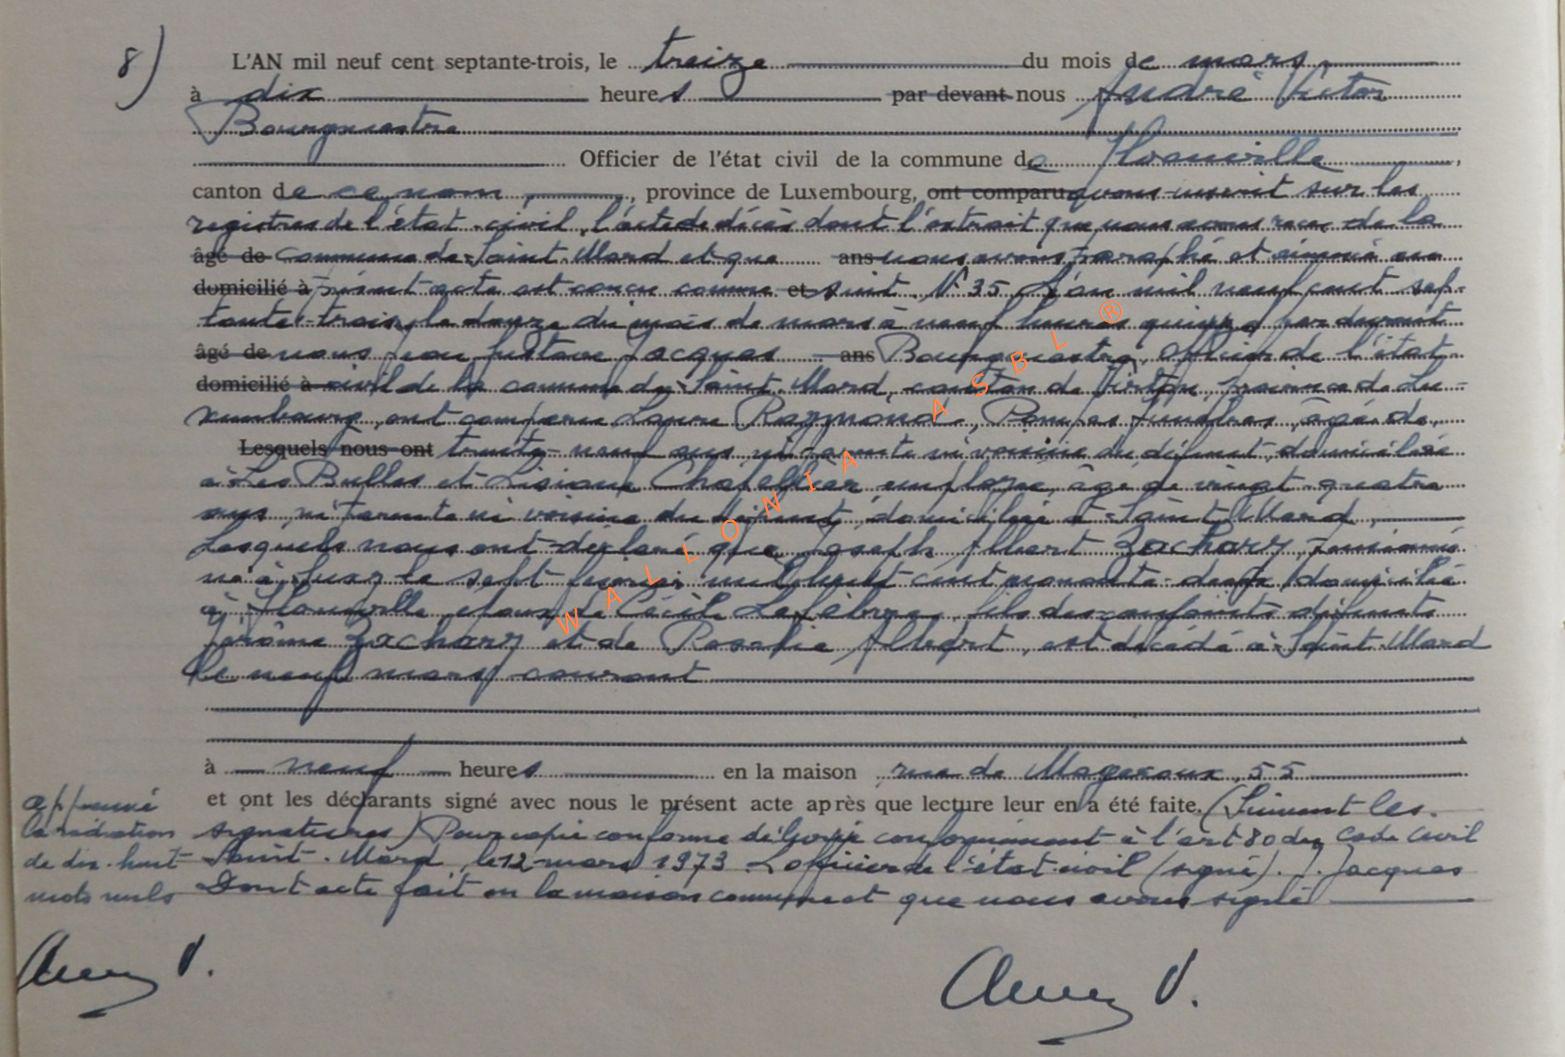 8) L'AN mil neuf cent septante-trois, le treize du mois de mars,
à dix heures par devant nous André Victor
Bourgmestre
Officier de l'état civil de la commune de
canton de ce nom, province de Luxembourg, ont comparu avons inscrit sur les
registres de l'état civil, l'acte de décès dont l'extrait que nous avons reçu de la
âgé de commune de Saint-Mard et que ans nous avons paraphé et annexé au
domicilié à présent acte est conçu comme et suit N° 35 L'an mil neuf cent sep-
tante-trois, le douze du mois de mars à neuf heures quinze par devant
âgé de nous Jean Gustave Jacques ans Bourgmestre, Officier de l'état
domicilié à civil de la commune de Saint-Mard, canton de Virton, province de Lu-
xembourg, ont comparu Laure Raymond, Pompes funèbres, âgé de
Lesquels nous ont trente-neuf ans ni parente ni voisine du défunt, domicilié
à Les Bulles et Lisiane Chapellier, employée, âgé de vingt-quatre
ans, ni parente ni voisine du défunt, domicilié à Saint-Mard,
Lesquels nous ont déclaré que Joseph Albert Zachary, pensionné
né à Suxy le sept février mil huit cent nonante-deux, domicilié
à époux de Cécile Lefèbvre, fils des conjoints défunts
Jérôme Zachary et de Rosalie Albert, est décédé à Saint-Mard
le neuf mars courant
à neuf heures en la maison rue de Mageroux, 55
et ont les déclarants signé avec nous le présent acte après que lecture leur en a été faite. (Suivent les
signatures) Pour copie conforme délivrée conformément à l'art 80 du Code Civil
Saint-Mard, le 12 mars 1973 L'officier de l'état-civil (signé). J. Jacques
Dont acte fait en la maison commune et que nous avons signé
approuvé
la radiation
de dix-huit
mots nuls
V.
V.
WALLONIA ASBL ®